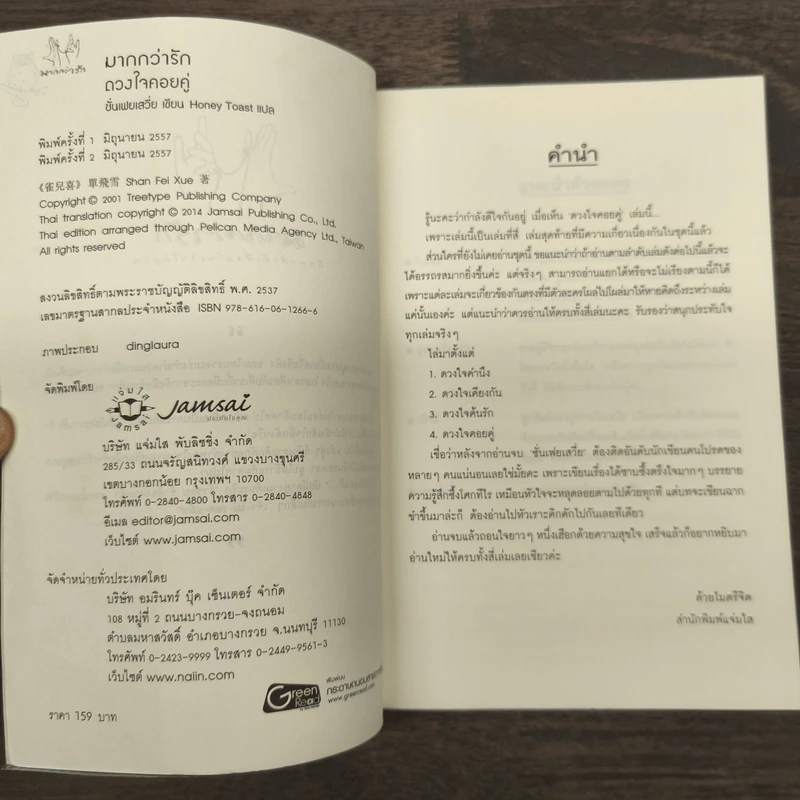 มากกว่ารัก
มากกว่ารัก
ดวงใจคอยคู่
ซั่นเฟยเสวี่ย เขียน Honey Toast แปล
พิมพ์ครั้งที่ 1 มิถุนายน 2557
พิมพ์ครั้งที่ 2 มิถุนายน 2557
《雀兒喜》單飛雪 Shan Fei Xue 著
Copyright © 2001 Treetype Publishing Company
Thai translation copyright © 2014 Jamsai Publishing Co., Ltd.
Thai edition arranged through Pelican Media Agency Ltd., Taiwan
All rights reserved
สงวนลิขสิทธิ์ตามพระราชบัญญัติลิขสิทธิ์ พ.ศ. 2537
เลขมาตรฐานสากลประจำหนังสือ ISBN 978-616-06-1266-6
ภาพประกอบ dinglaura
จัดพิมพ์โดย
แจ่มใส
Jamsai
Jamsai
บริษัท แจ่มใส พับลิชชิ่ง จำกัด
285/33 ถนนจรัญสนิทวงศ์ แขวงบางขุนศรี
เขตบางกอกน้อย กรุงเทพฯ 10700
โทรศัพท์ 0-2840-4800 โทรสาร 0-2840-4848
อีเมล editor@jamsai.com
เว็บไซต์ www.jamsai.com
จัดจำหน่ายทั่วประเทศโดย
บริษัท อมรินทร์ บุ๊ค เซ็นเตอร์ จำกัด
108 หมู่ที่ 2 ถนนบางกรวย-จงถนอม
ตำบลมหาสวัสดิ์ อำเภอบางกรวย จ.นนทบุรี 11130
โทรศัพท์ 0-2423-9999 โทรสาร 0-2449-9561-3
เว็บไซต์ www.naiin.com
Green Read
พิมพ์บน
กระดาษถนอมสายตา
www.greenread.com
ราคา 159 บาท
คำนำ
รู้นะคะว่ากำลังดีใจกันอยู่ เมื่อเห็น 'ดวงใจคอยคู่' เล่มนี้...
เพราะเล่มนี้เป็นเล่มที่สี่ เล่มสุดท้ายที่มีความเกี่ยวเนื่องกันในชุดนี้แล้ว
ส่วนใครที่ยังไม่เคยอ่านชุดนี้ ขอแนะนำว่าถ้าอ่านตามลำดับเล่มดังต่อไปนี้แล้วจะ
ได้อรรถรสมากยิ่งขึ้นค่ะ แต่จริงๆ สามารถอ่านแยกได้หรือจะไม่เรียงตามนี้ก็ได้
เพราะแต่ละเล่มจะเกี่ยวข้องกันตรงที่มีตัวละครโผล่ไปโผล่มาให้หายคิดถึงระหว่างเล่ม
แค่นั้นเองค่ะ แต่แนะนำว่าควรอ่านให้ครบทั้งสี่เล่มนะคะ รับรองว่าสนุกประทับใจ
ทุกเล่มจริงๆ
ไล่มาตั้งแต่
1. ดวงใจคำนึง
2. ดวงใจเคียงกัน
3. ดวงใจค้นรัก
4. ดวงใจคอยคู่
เชื่อว่าหลังจากอ่านจบ 'ซั่นเฟยเสวี่ย' ต้องติดอันดับนักเขียนคนโปรดของ
หลายๆ คนแน่นอนเลยใช่มั้ยคะ เพราะเขียนเรื่องได้ซาบซึ้งตรึงใจมากๆ บรรยาย
ความรู้สึกซึ้งโศกทีไร เหมือนหัวใจจะหลุดลอยตามไปด้วยทุกที แต่บทจะเขียนฉาก
ขำขึ้นมาล่ะก็ ต้องอ่านไปหัวเราะคิกคักไปกันเลยทีเดียว
อ่านจบแล้วถอนใจยาวๆ หนึ่งเฮือกด้วยความสุขใจ เสร็จแล้วก็อยากหยิบมา
อ่านใหม่ให้ครบทั้งสี่เล่มเลยเชียวค่ะ
ด้วยไมตรีจิต
สำนักพิมพ์แจ่มใส